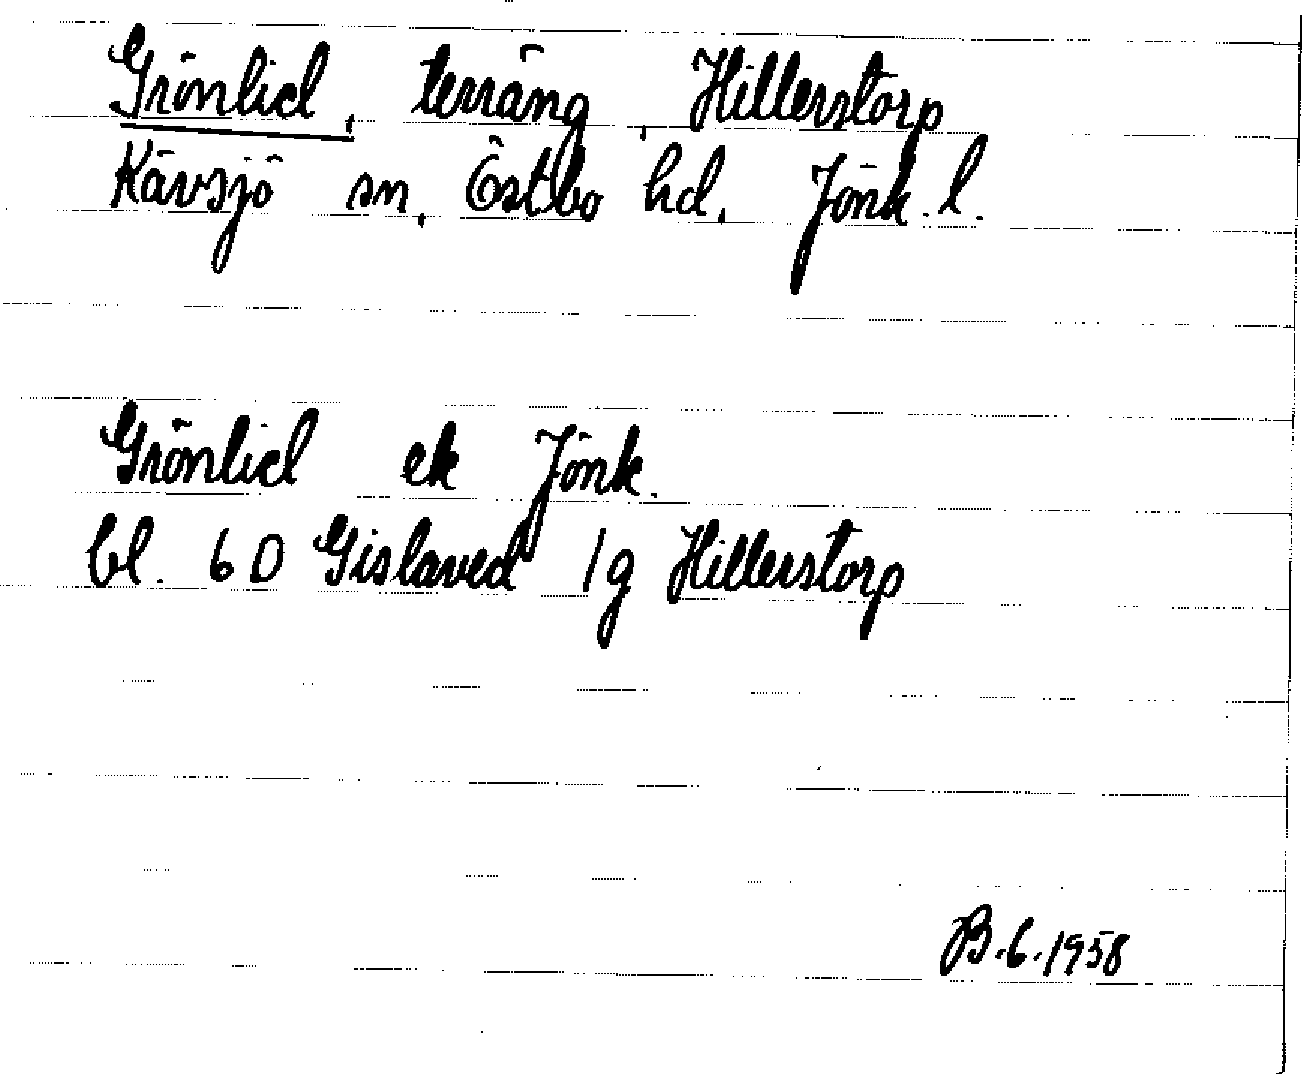 Grönlid, terräng, Hillerstorp
Kävsjö sn, Östbo hd, Jönk. l.
Grönlid ek Jönk.
bl. 6D Gislaved 1g Hillerstorp
B.6.1958